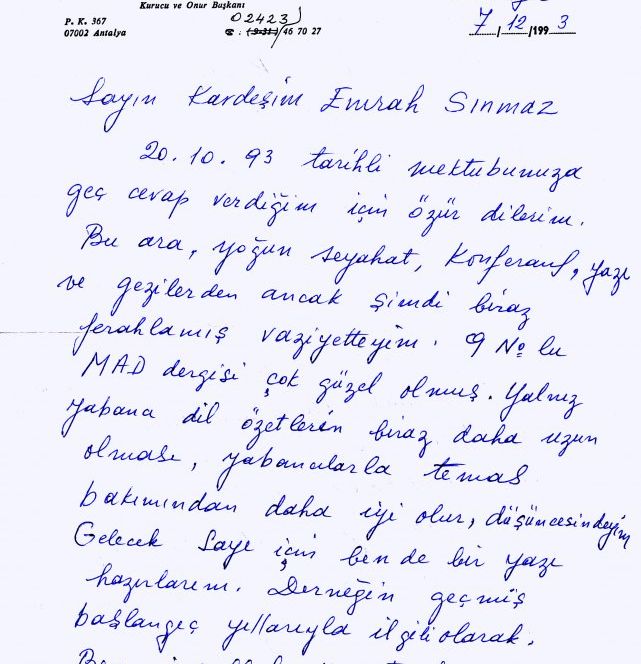 Kurucu ve Onur Başkanı
P. K. 367
07002 Antalya
02423
☎ : (9-31) 46 70 27
7/12/1993
Sayın Kardeşim Emrah Sınmaz
20.10.93 tarihli mektubunuza
geç cevap verdiğim için özür dilerim.
Bu ara, yoğun seyahat, Konferans, yazı
ve gezilerden ancak şimdi biraz
ferahlamış vaziyetteyim. 9 No lu
MAD dergisi çok güzel olmuş. Yalnız
yabancı dil özetlerin biraz daha uzun
olması, yabancılarla temas
bakımından daha iyi olur, düşüncesindeyim
Gelecek Sayı için ben de bir yazı
hazırlarım. Derneğin geçmiş
başlangıç yıllarıyla ilgili olarak.